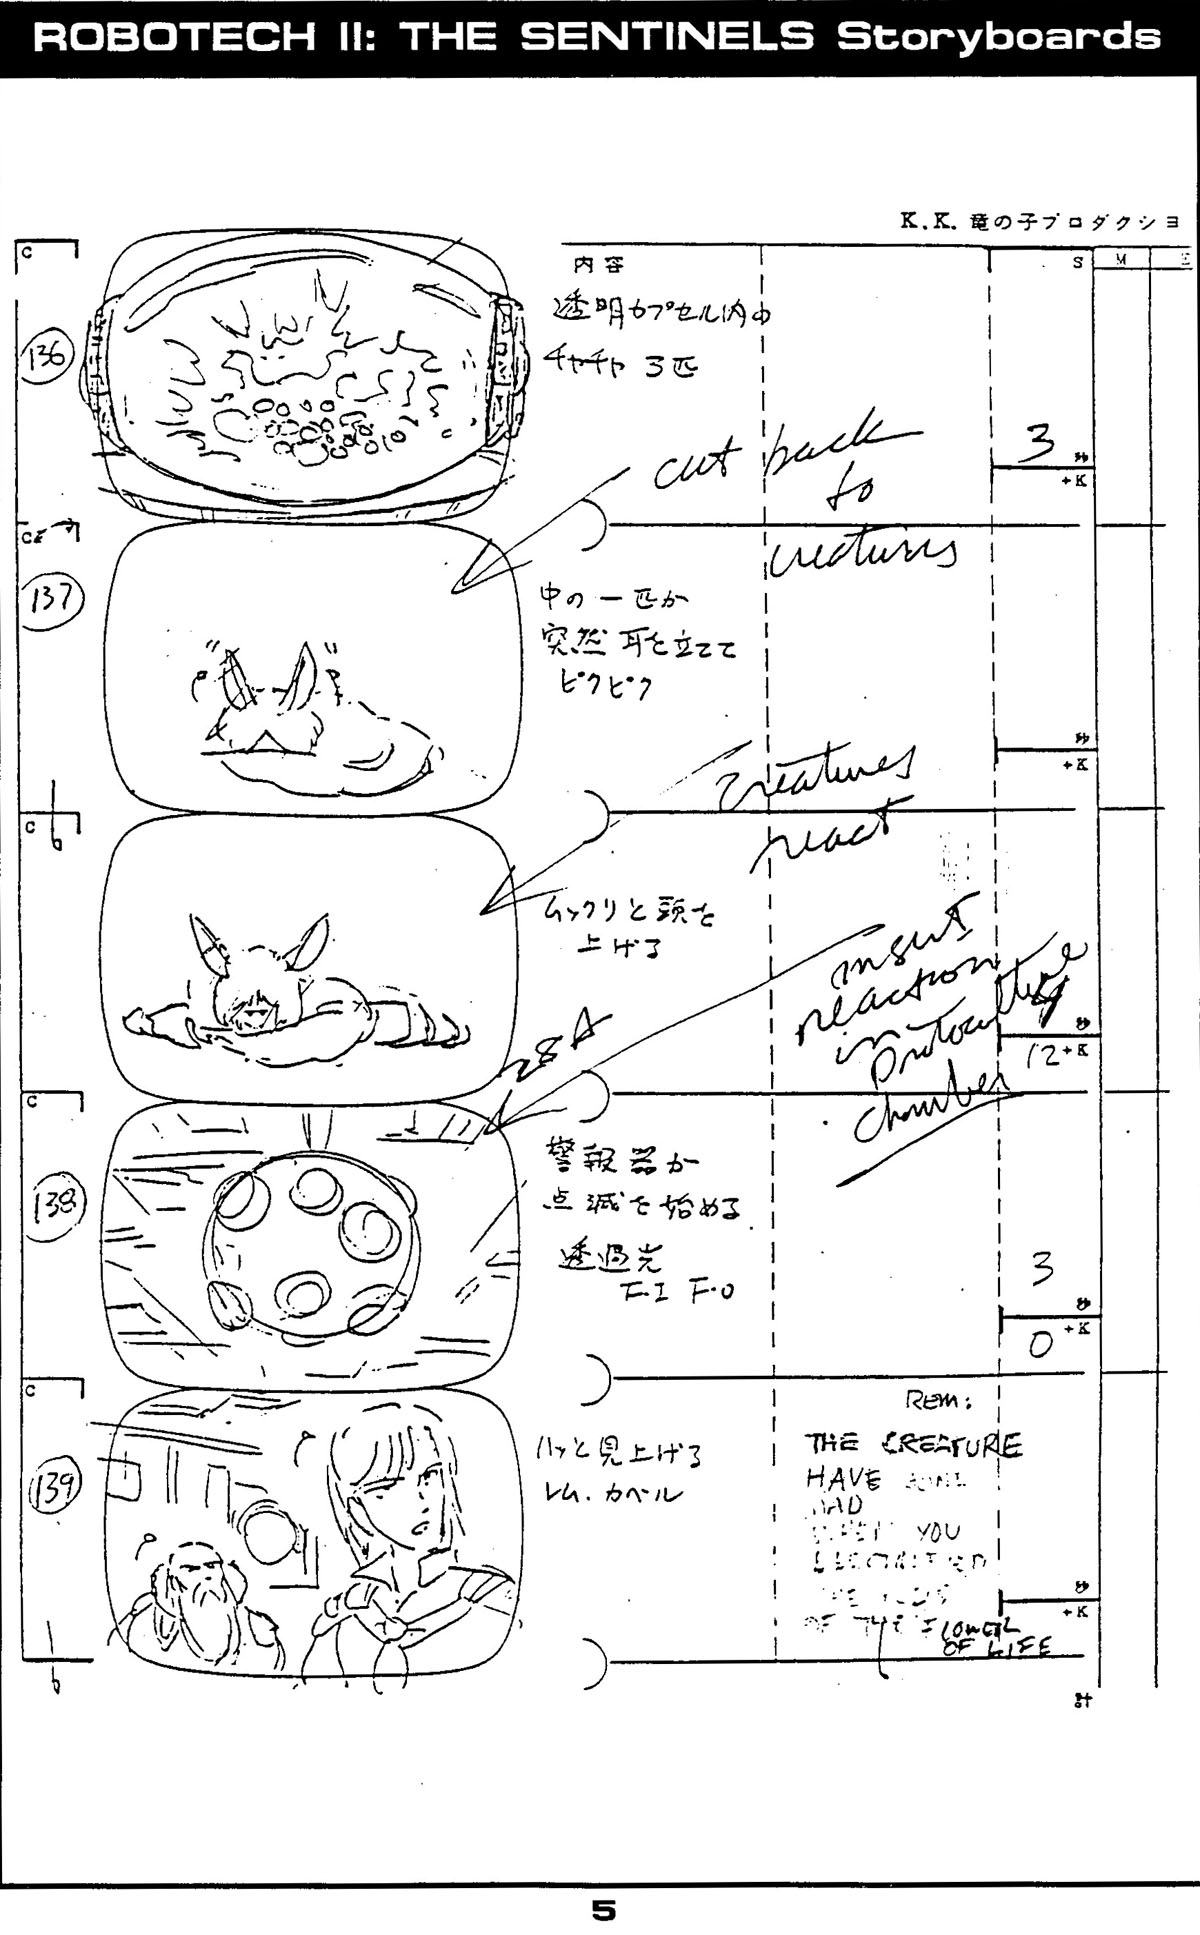 ROBOTECH II: THE SENTINELS Storyboards
K.K. 竜の子プロダクショ
C
内容
S
M
E
136
透明カプセル内の
チャチャ 3匹
cut back
to
creatures
3
秒
+K
C
137
中の一匹が
突然 耳を立てて
ピクピク
秒
+K
Creatures
react
C
6
ムックリと頭を
上げる
insert
reaction
in
Protoculture
chamber
秒
12 +K
C
138
警報器が
点滅を始める
透過光
F・I F・O
3
秒
0 +K
C
139
ハッと見上げる
レム. カベル
REM:
THE CREATURE
HAVE
YOU
OF THE FLOWER
OF LIFE
秒
+K
6
計
5